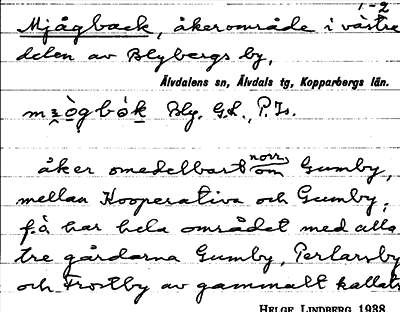 1-2
Mjågback, åkerområde i västre
delen av Blybergs by,
Älvdalens sn, Älvdals tg, Kopparbergs län.
Bly. G.L., P.Js.
åker omedelbart norr om Gumby,
mellan Kooperativa och Gumby;
f.ö har hela området med alla
tre gårdarna Gumby, Perlarsby
och Frostby av gammalt kallats
HELGE LINDBERG 1938